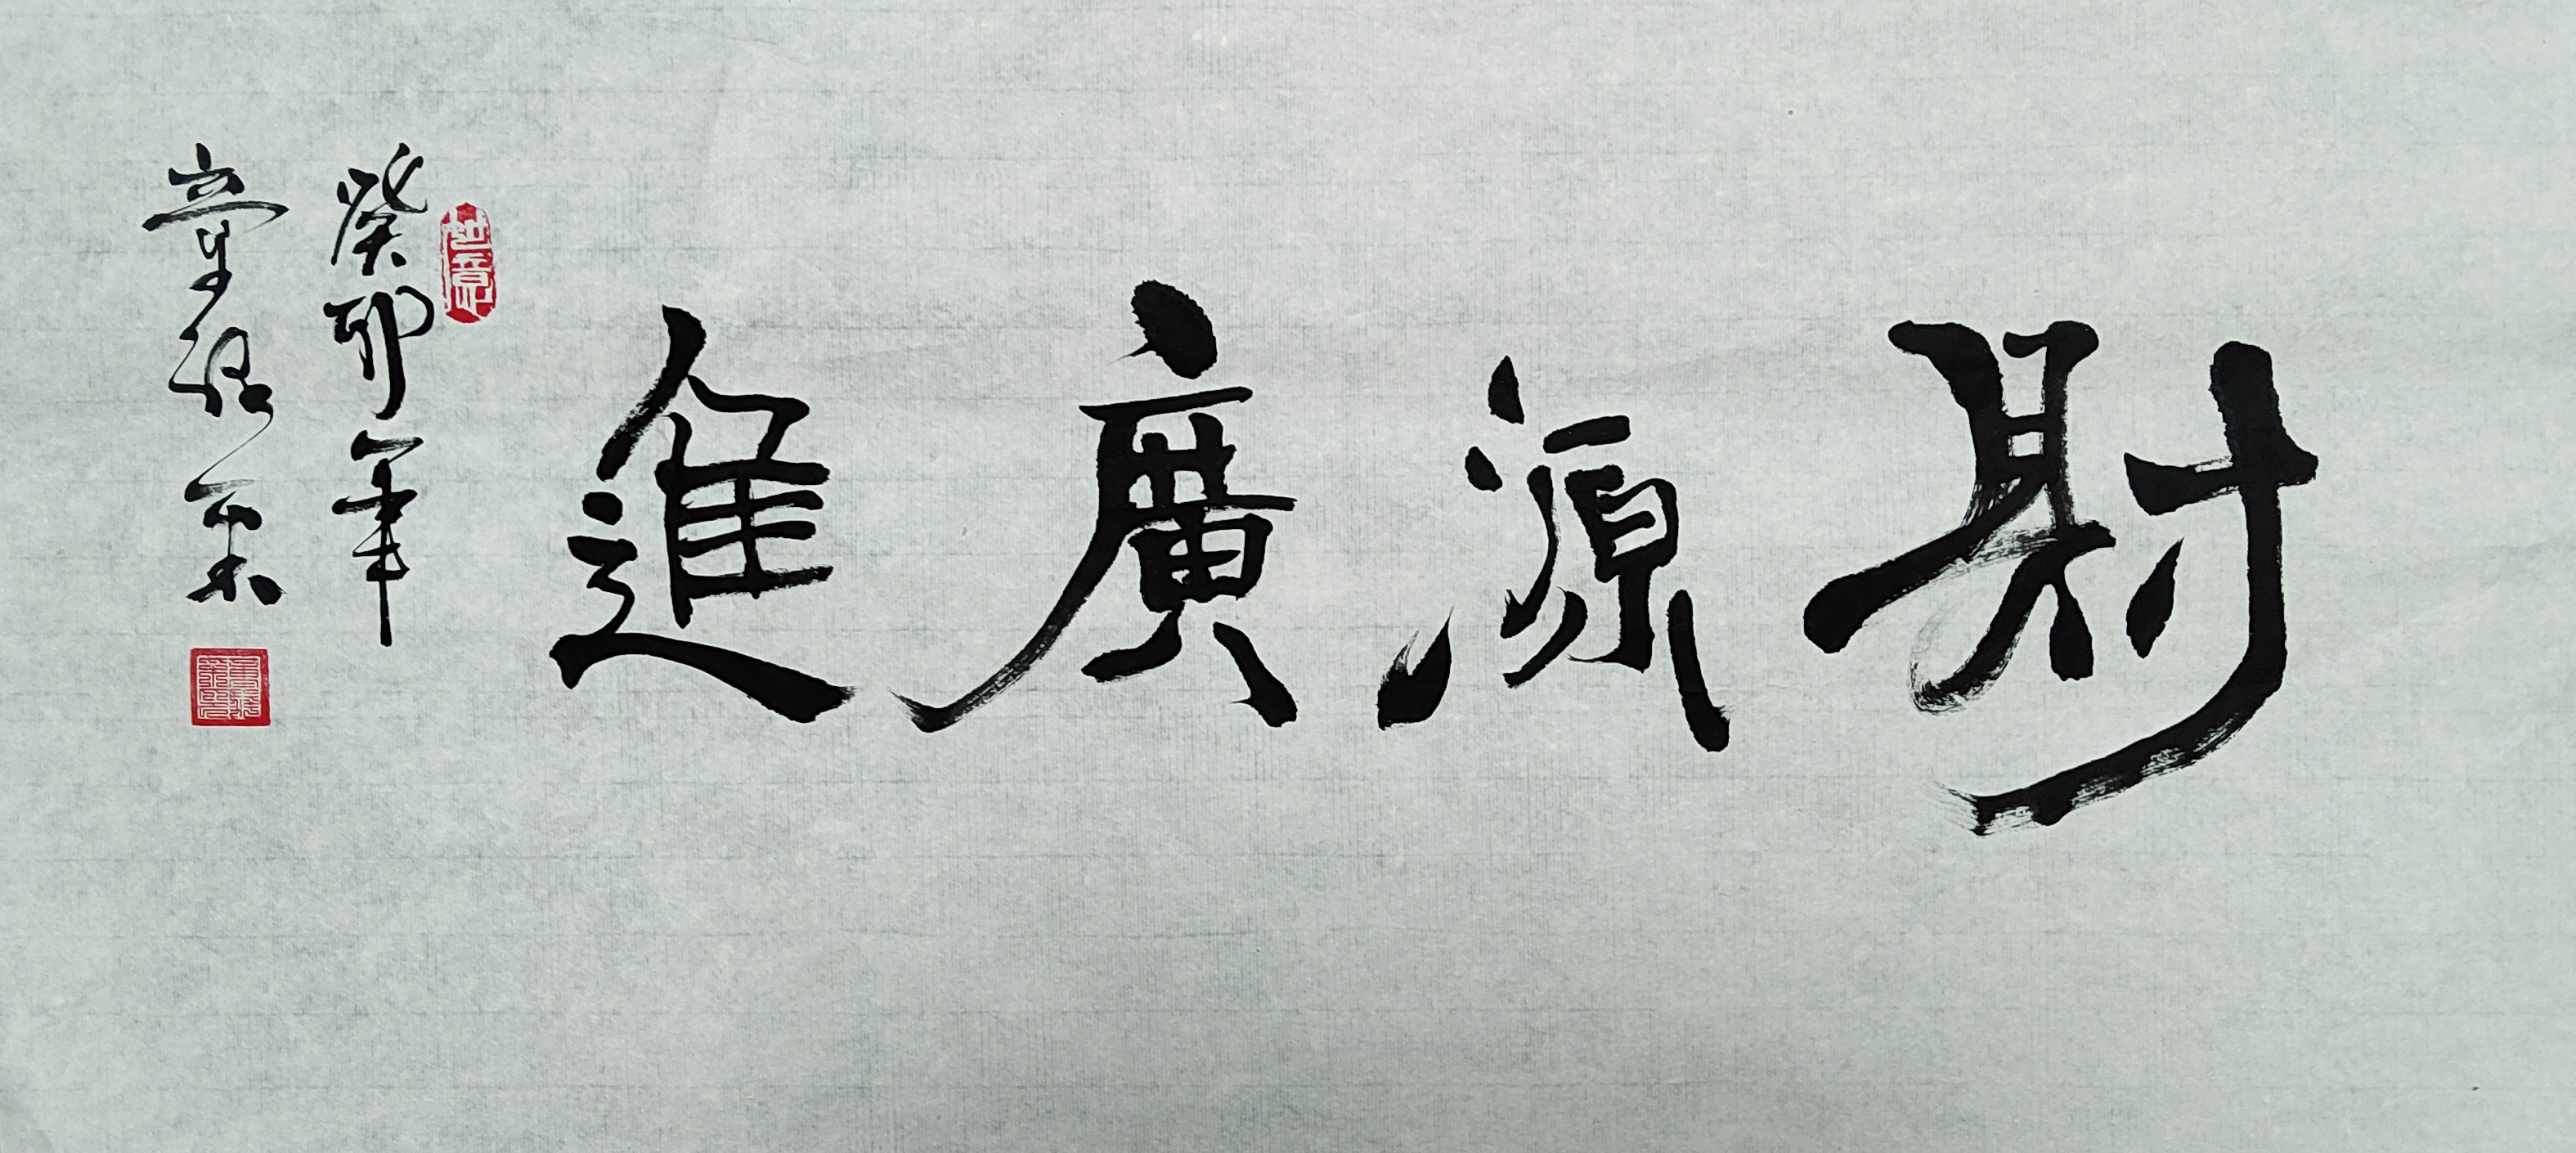 財源廣進
癸卯年